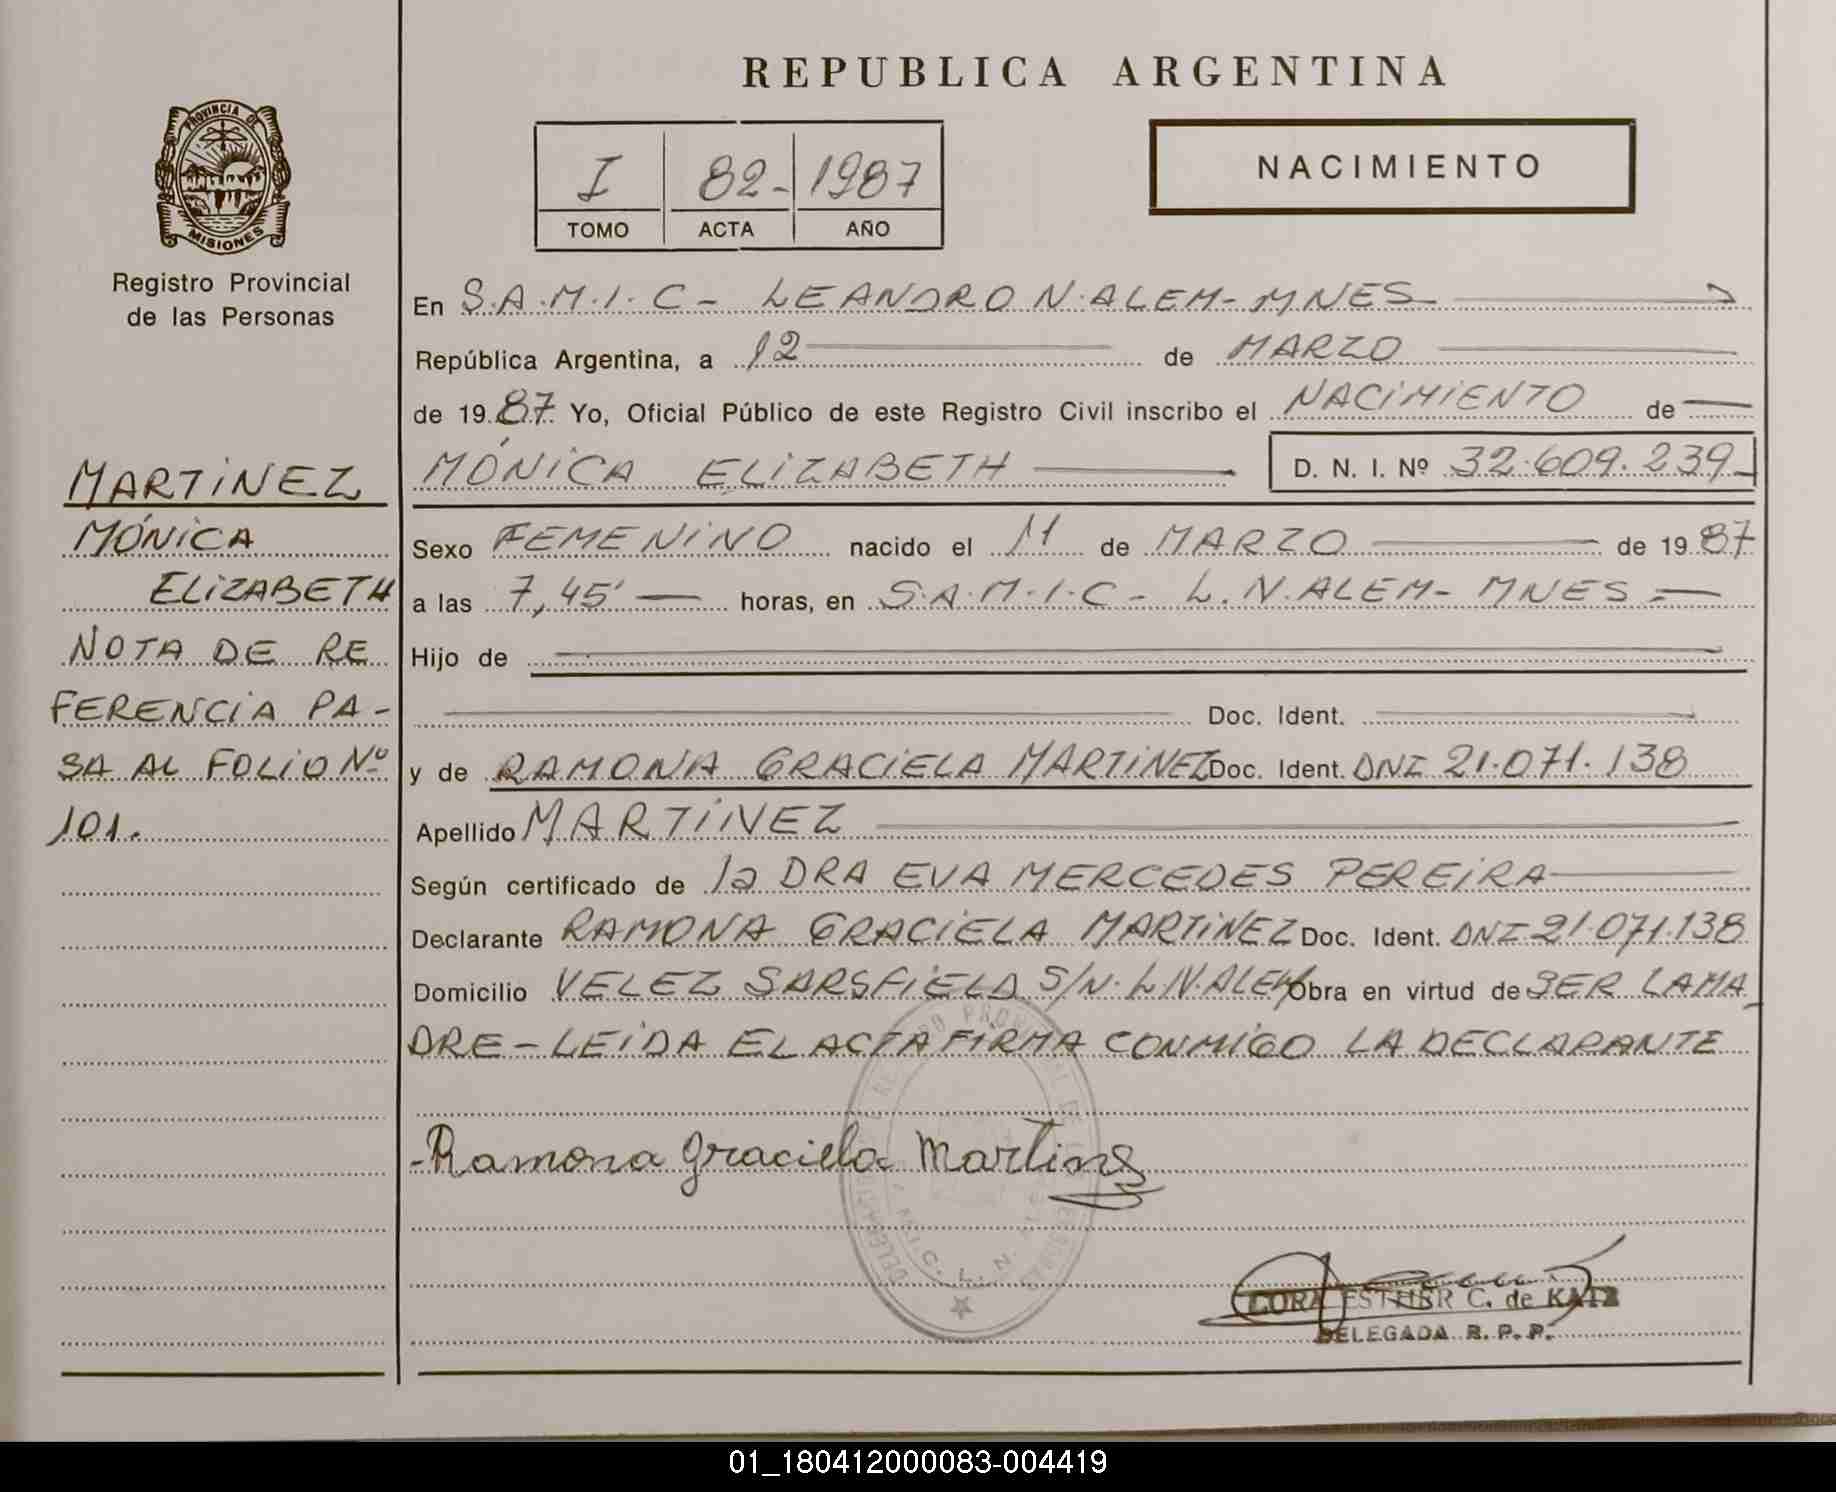 REPUBLICA ARGENTINA
PROVINCIA DE
MISIONES
Registro Provincial
de las Personas
I 82- 1987
TOMO ACTA AÑO
NACIMIENTO
En S.A.M.I.C- LEANDRO N. ALEM- MNES
República Argentina, a 12 de MARZO
de 1987. Yo, Oficial Público de este Registro Civil inscribo el NACIMIENTO de
MÓNICA ELIZABETH D. N. I. Nº 32.609.239
Sexo FEMENINO nacido el 11 de MARZO de 1987
a las 7,45' horas, en S.A.M.I.C- L.N.ALEM- MNES
Hijo de
Doc. Ident.
y de RAMONA GRACIELA MARTINEZ Doc. Ident. DNI 21.071.138
Apellido MARTINEZ
Según certificado de la DRA EVA MERCEDES PEREIRA
Declarante RAMONA GRACIELA MARTINEZ Doc. Ident. DNI 21.071.138
Domicilio VELEZ SARSFIELD S/N. L.N.ALEM Obra en virtud de SER LA MA
DRE- LEIDA EL ACTA FIRMA CONMIGO LA DECLARANTE
MARTINEZ
MÓNICA
ELIZABETH
NOTA DE RE
FERENCIA PA-
SA AL FOLIO Nº
101.
Ramona Graciela
CORA ESTHER C. de KATZ
DELEGADA R. P. P.
01_180412000083-004419